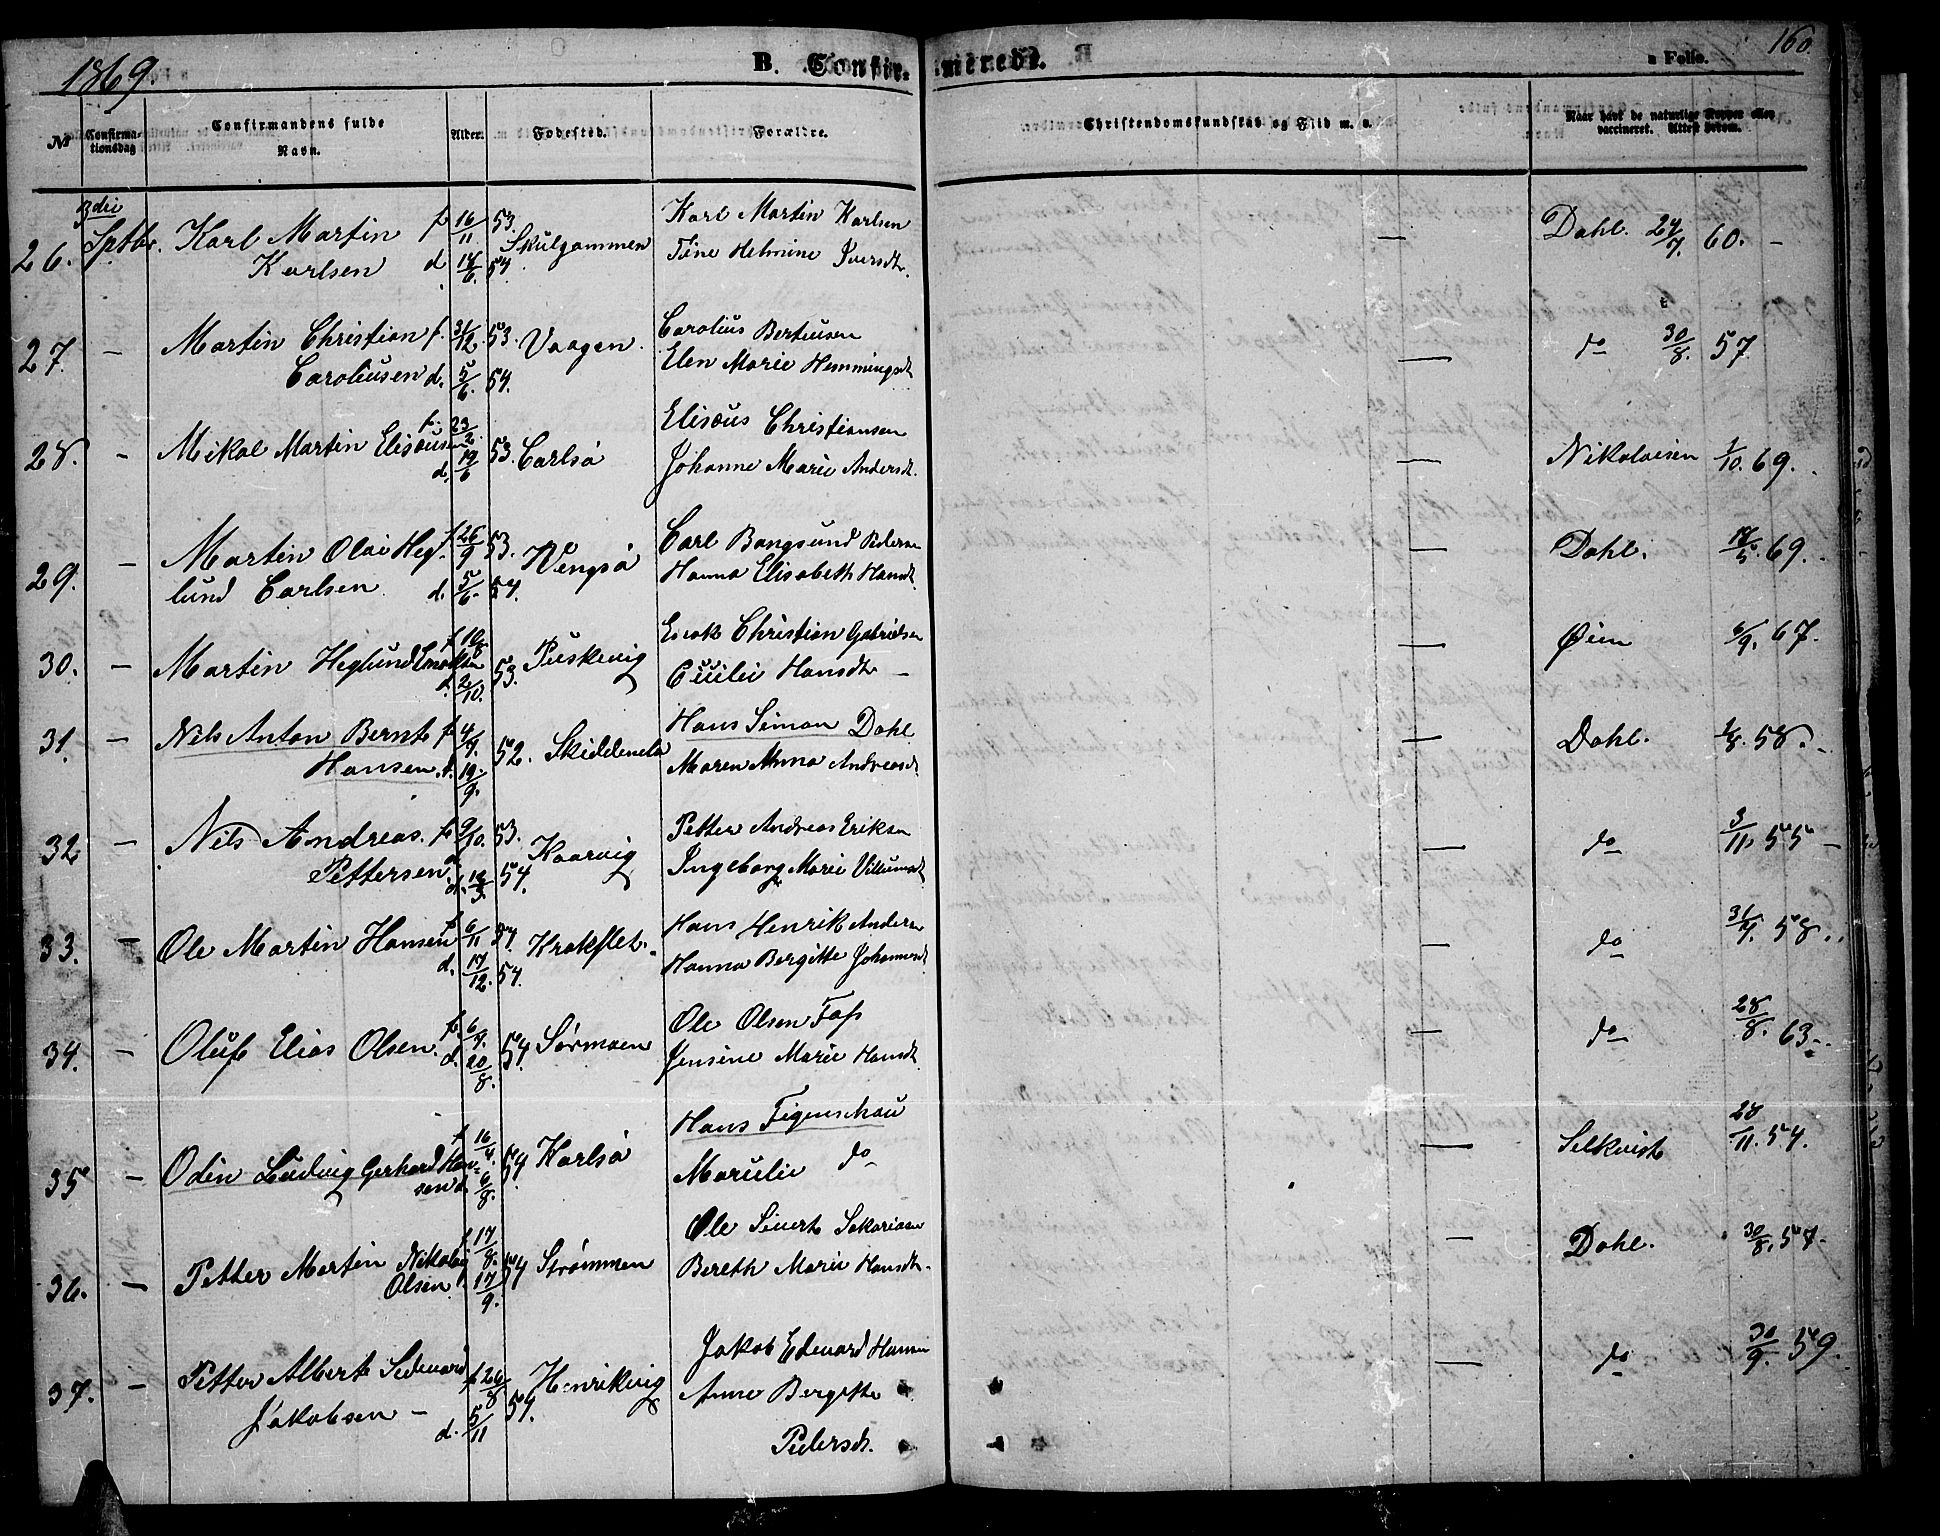 1869.
B. Confirmerede.
160.
a Folio.
№
Confirmationsdag
Confirmandens fulde Navn.
Alder.
Fødested.
Forældre.
Christendomskundskab og Flid m. v.
Naar havt de naturlige Kopper eller vaccineret. Attest herom.
26. 3die Septbr. Karl Martin f. 16/11 53. Skulgammen Karl Martin Karlsen — Dahl. 24/7. 60. –
Karlsen d. 18/6. 54. Tine Helmine Iversdt.
27. – Martin Christian f. 31/12. 53. Vaagen. Carolius Berteusen — do 30/8. 57.
Caroliusen d. 5/6. 54. Elen Marie Hemmingsdt
28. – Mikal Martin Elisæusen f. 23/2. 53. Carlsø Elisæus Christiansen — Nikolaisen 1/10. 69.
d. 19/6 Johanne Marie Andersdt.
29. – Martin Olai Heg- f. 26/9 53. Vengsø Carl Bangsund Pedersen — Dahl. 17/5. 69.
lund Carlsen. d. 5/6. 54. Hanna Elisabeth Hansdt
30. – Martin Heglund Enoksen f. 10/8 53. Puskevig Enok Christian Gabrielsen — Øien 6/9. 67.
d. 2/10. Cecilie Hansdt –
31. – Nils Anton Bernt f. 4/4. 52. Skiddenelv Hans Simon Dahl. — Dahl. 1/8. 58. –
Hansen. d. 19/9. Maren Anna Andreasdt.
32 – Nils Andreas. f. 9/10. 53. Kaarvig Petter Andreas Eriksen — do 3/11. 55 –
Pettersen. d. 54. Ingeborg Marie Villumsdt
33. – Ole Martin Hansen f. 6/11 54. Krokslet. Hans Henrik Andersen — do 31/7. 58.
d. 17/12. 54. Hanna Bergitte Johannesdt.
34. – Oluf Elias Olsen. f. 6/4. 54. Sørmoen Ole Olsen Foss — do 28/8. 63. –
d. 20/8. Jensine Marie Hansdt.
35 – Odin Ludvig Gerhard Han- f. 16/4. 54. Karlsø Hans Figenschau — Selkvist 28/11. 54.
sen d. 6/8. Marelie do
36. – Petter Martin Nikolai f. 17/8. 54 Strømmen Ole Sivert Sakariasen — Dahl. 30/8. 57.
Olsen. 17/9. Bereth Marie Hansdt.
37. – Petter Albert Sedevard f. 26/8 Henrikvig Jakob Edevard Hansen — do 30/9. 59.
Jakobsen – d. 5/11 54. Anne Bergitte
Pedersdt.